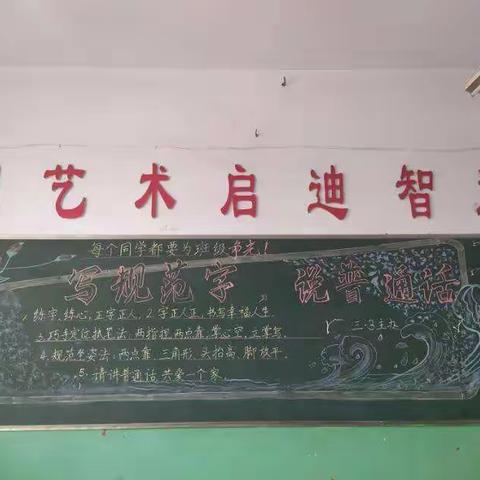 艺术启迪智
每个同学都要为班级争光！
写规范字 说普通话
1. 练字，练心，正字正人，2. 字正人正，书写幸福人生
3. 巧手定位执笔法：两指捏，两点靠，掌心空，立掌写
4. 规范坐姿法：两点靠，三角形，头抬高，脚放平。
5. 请讲普通话 共爱一个家。